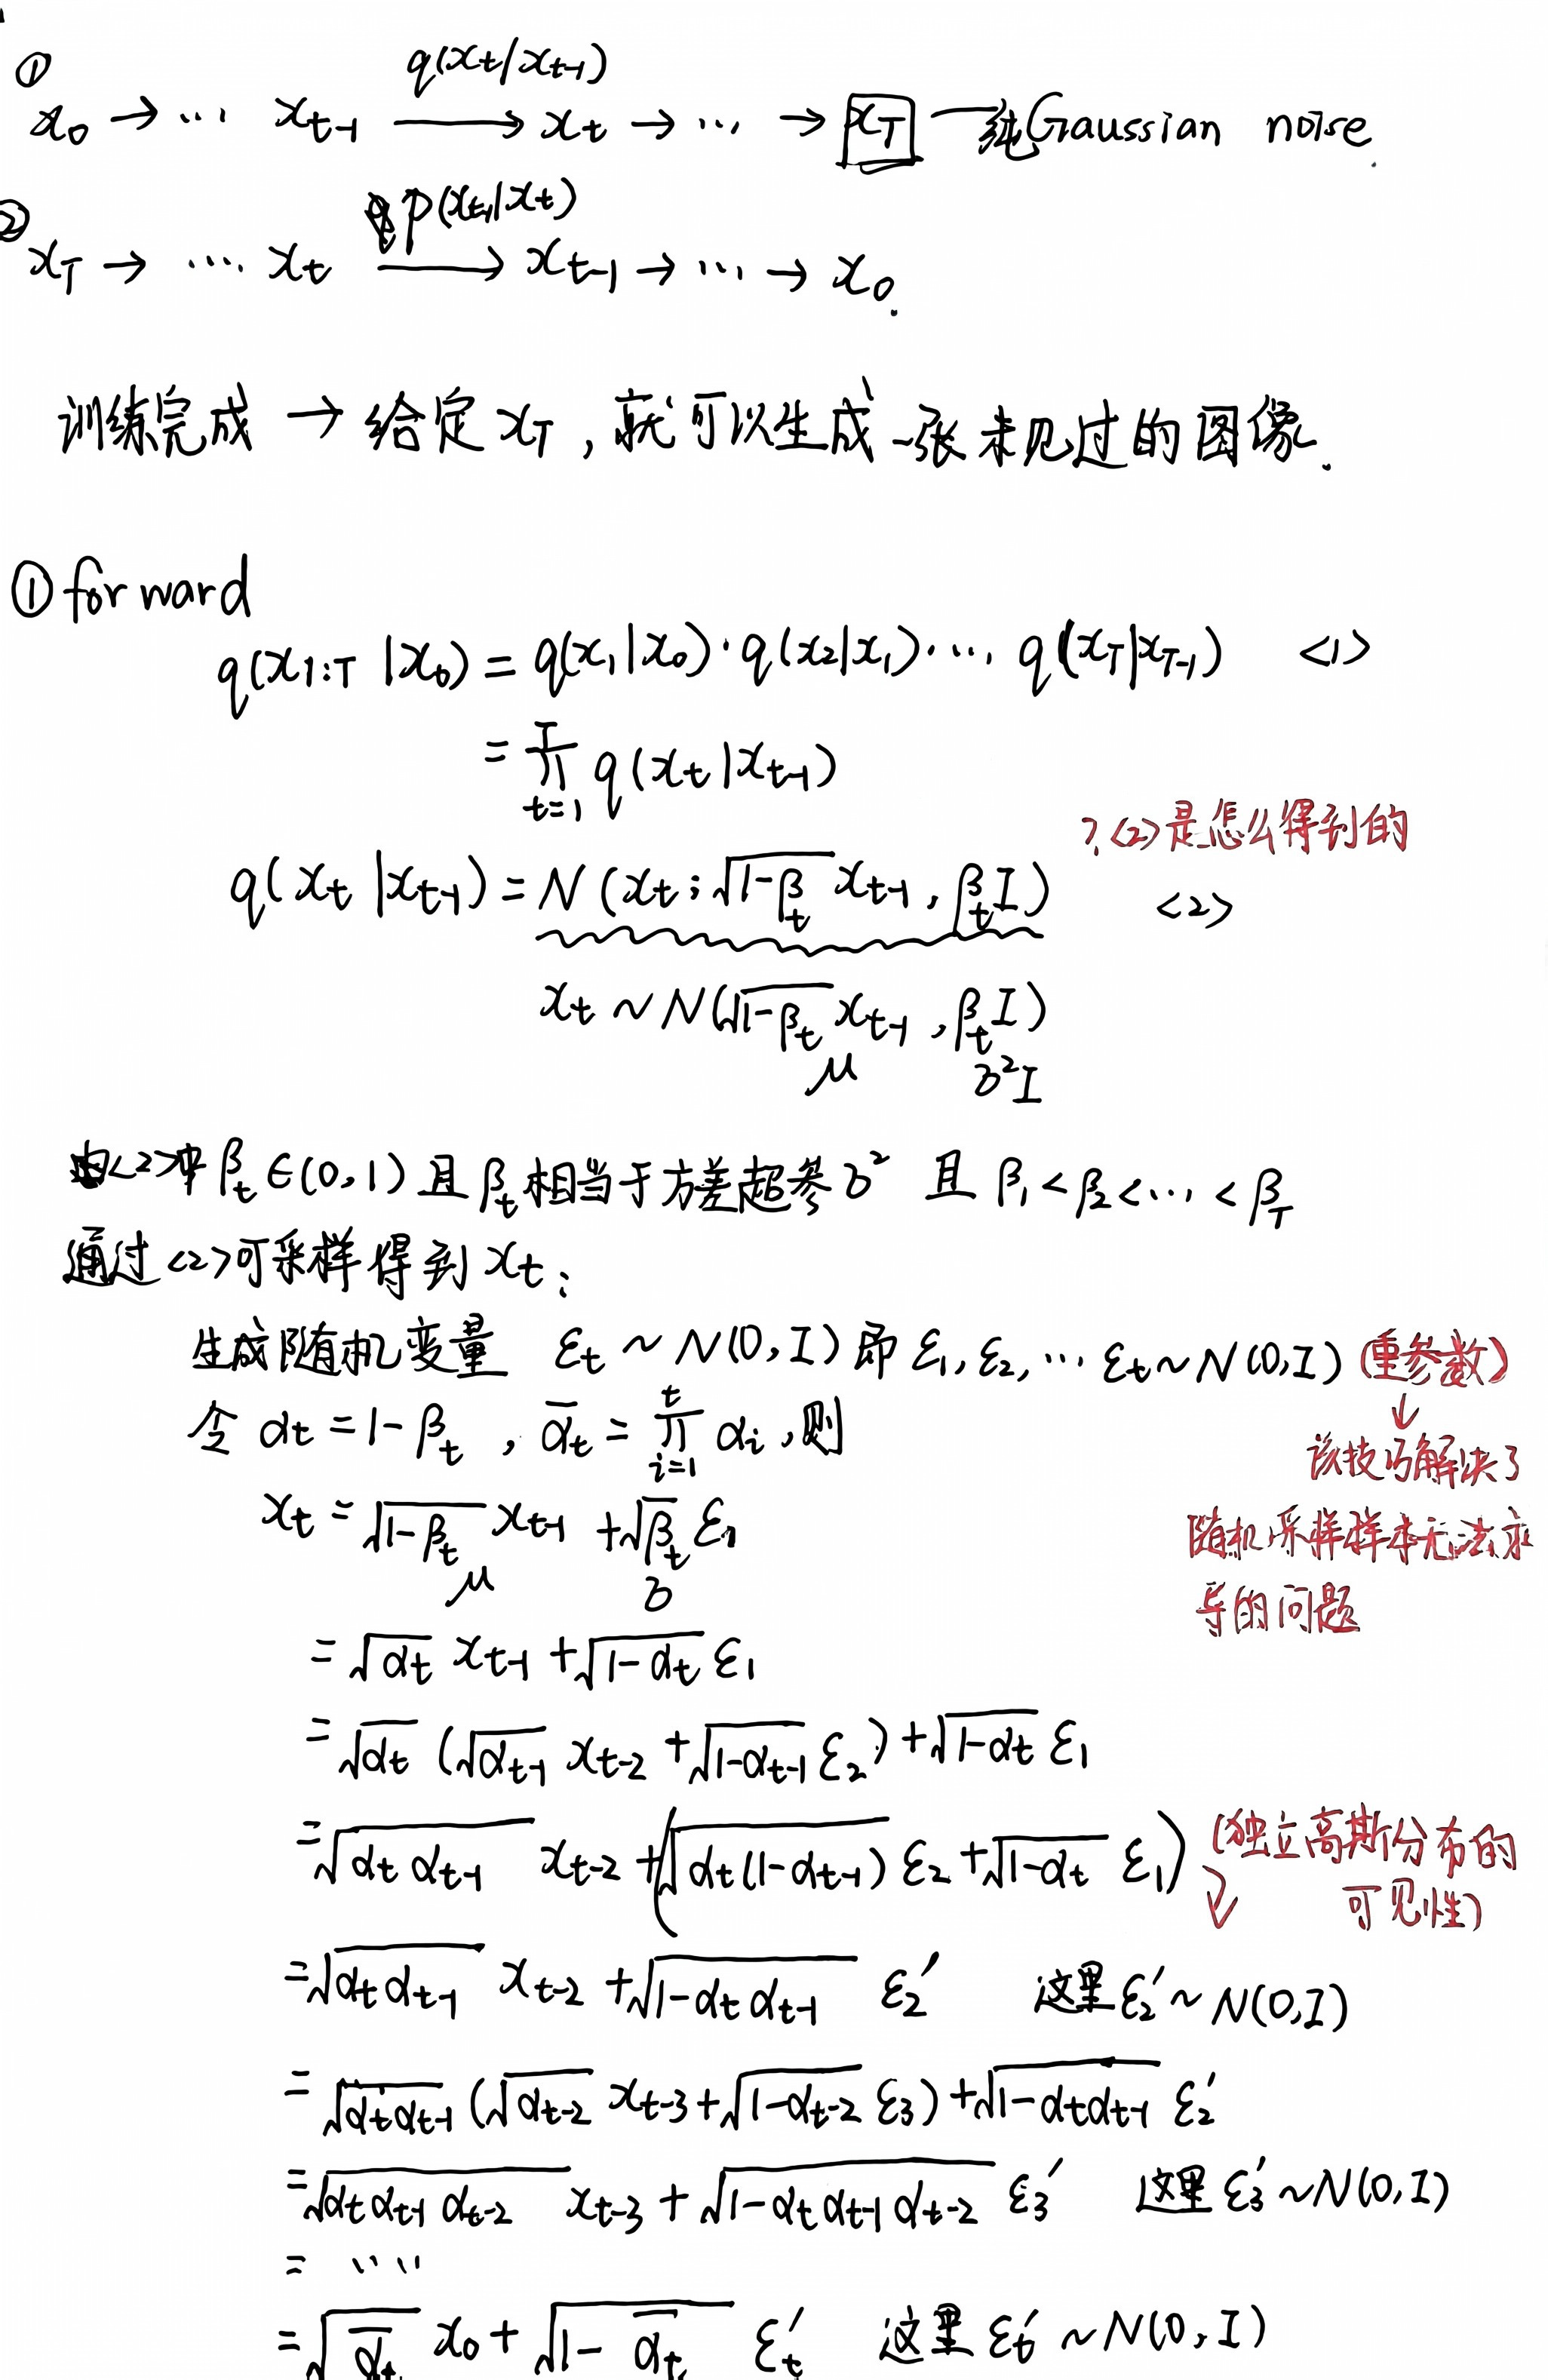 ①
q(x_t|x_{t-1})
x_0 → ... x_{t-1} → x_t → ... → x_T 纯Gaussian noise.
②
p(x_{t-1}|x_t)
x_T → .... x_t → x_{t-1} → ... → x_0.
训练完成 → 给定 x_T , 就可以生成一张未见过的图像.
① forward
q(x_{1:T} |x_0) = q(x_1|x_0)·q(x_2|x_1)·... q(x_T|x_{T-1}) <1>
= ∏_{t=1}^{T} q(x_t|x_{t-1})
?<2>是怎么得到的
q(x_t |x_{t-1}) = N(x_t; √(1-β_t) x_{t-1}, β_t I) <2>
x_t ~ N(√(1-β_t) x_{t-1}, β_t I)
μ σ²I
<2>中 β_t ∈(0,1) 且 β_t 相当于方差超参 σ² 且 β_1 < β_2 < ... < β_T
通过<2>可采样得到 x_t:
生成随机变量 ε_t ~ N(0, I) 即 ε_1, ε_2, ... ε_t ~ N(0,I) (重参数)
↓
令 α_t = 1-β_t , ᾱ_t = ∏_{i=1}^{t} α_i ,则
该技巧解决了
随机采样样本无法求
导的问题
x_t = √(1-β_t) x_{t-1} + √β_t ε_1
μ σ
= √α_t x_{t-1} + √(1-α_t) ε_1
= √α_t (√α_{t-1} x_{t-2} + √(1-α_{t-1}) ε_2) + √(1-α_t) ε_1
= √(α_t α_{t-1}) x_{t-2} + (√(α_t(1-α_{t-1})) ε_2 + √(1-α_t) ε_1) (独立高斯分布的
↓ 可见性)
= √(α_t α_{t-1}) x_{t-2} + √(1-α_t α_{t-1}) ε_2' 这里 ε_2' ~ N(0,I)
= √(α_t α_{t-1}) (√α_{t-2} x_{t-3} + √(1-α_{t-2}) ε_3) + √(1-α_t α_{t-1}) ε_2'
= √(α_t α_{t-1} α_{t-2}) x_{t-3} + √(1-α_t α_{t-1} α_{t-2}) ε_3' 这里 ε_3' ~ N(0, I)
= ....
= √ᾱ_t x_0 + √(1-ᾱ_t) ε_t' 这里 ε_t' ~ N(0, I)